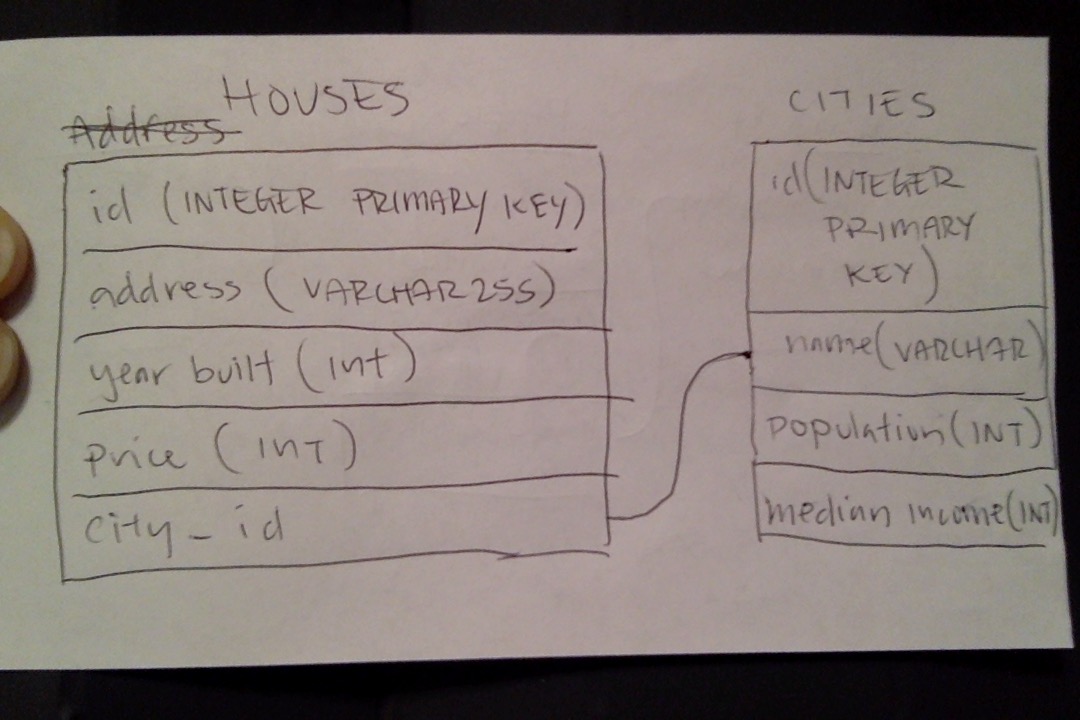 HOUSES
Address
id (INTEGER PRIMARY KEY)
address (VARCHAR255)
year built (int)
price (INT)
city_id
CITIES
id(INTEGER
PRIMARY
KEY)
name(VARCHAR)
population(INT)
median income(INT)